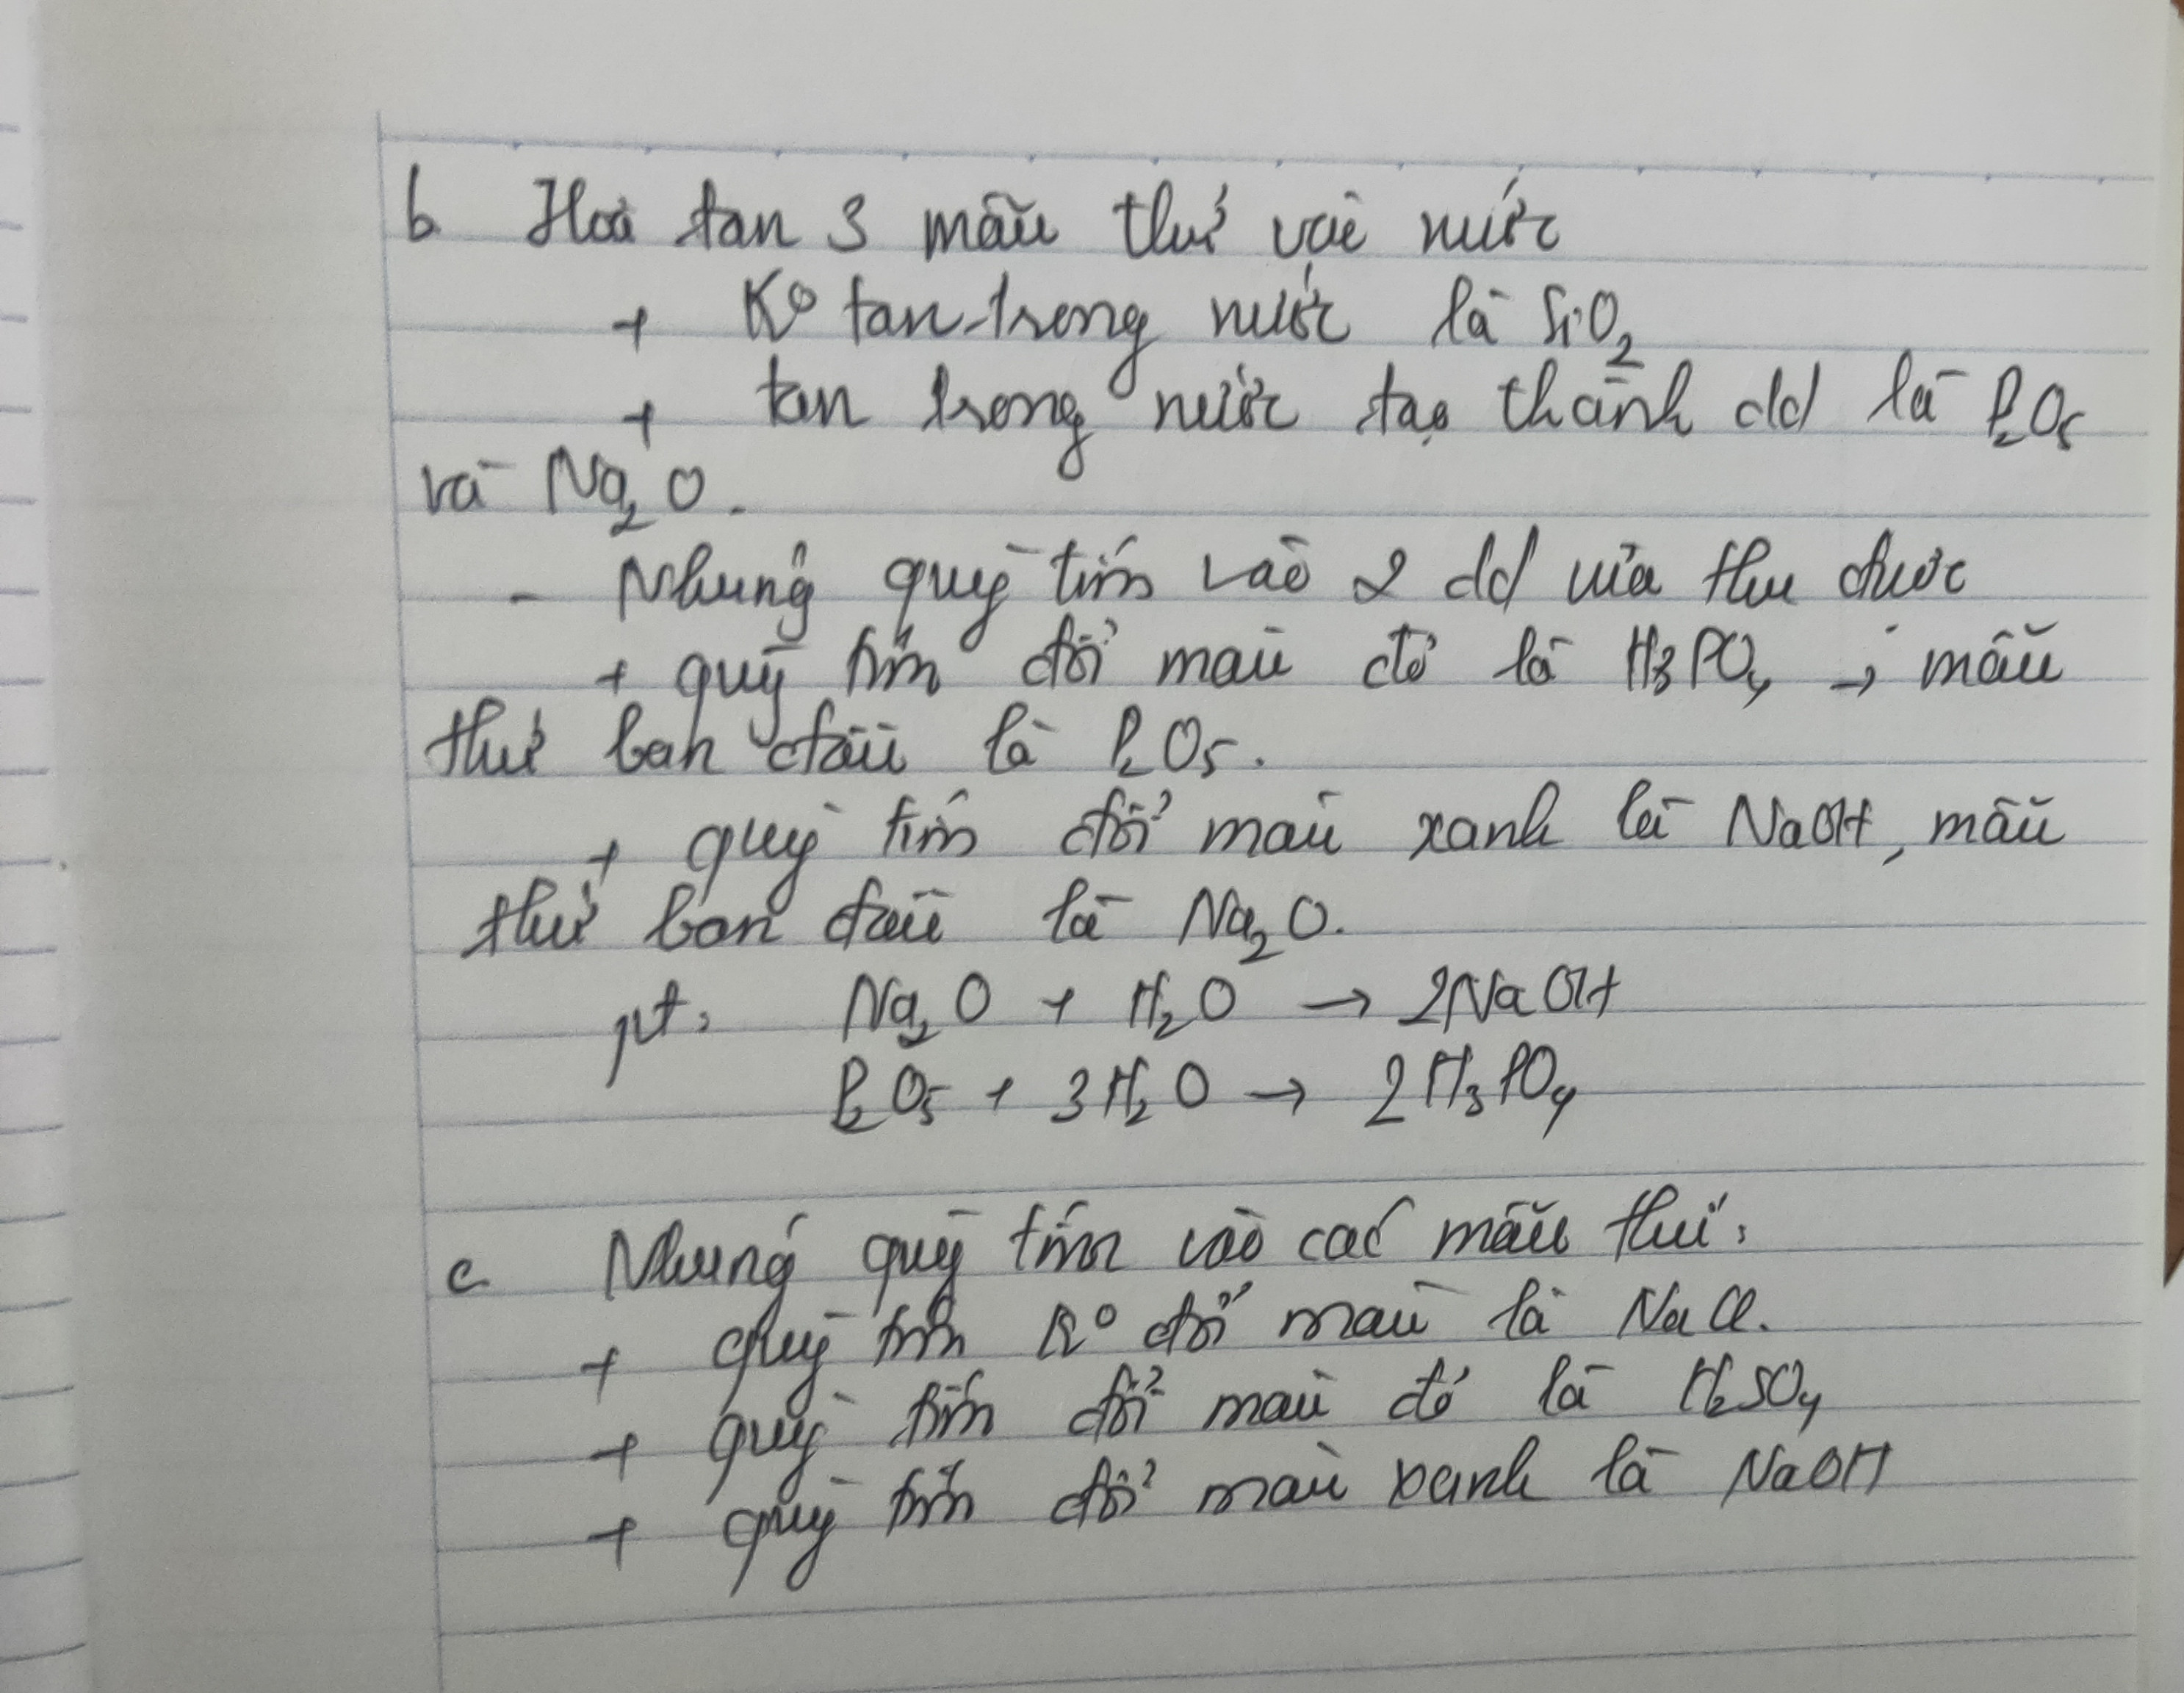 b. Hoà tan 3 mẫu thử vào nước
+ Ko tan trong nước là SiO2
+ tan trong nước tạo thành dd là P2O5
và Na2O.
- Nhúng quỳ tím vào 2 dd vừa thu được
+ quỳ tím đổi màu đỏ là H3PO4 → mẫu
thử ban đầu là P2O5.
+ quỳ tím đổi màu xanh là NaOH, mẫu
thử ban đầu là Na2O.
pt: Na2O + H2O → 2NaOH
P2O5 + 3H2O → 2H3PO4
c. Nhúng quỳ tím vào các mẫu thử:
+ quỳ tím ko đổi màu là NaCl.
+ quỳ tím đổi màu đỏ là H2SO4
+ quỳ tím đổi màu xanh là NaOH